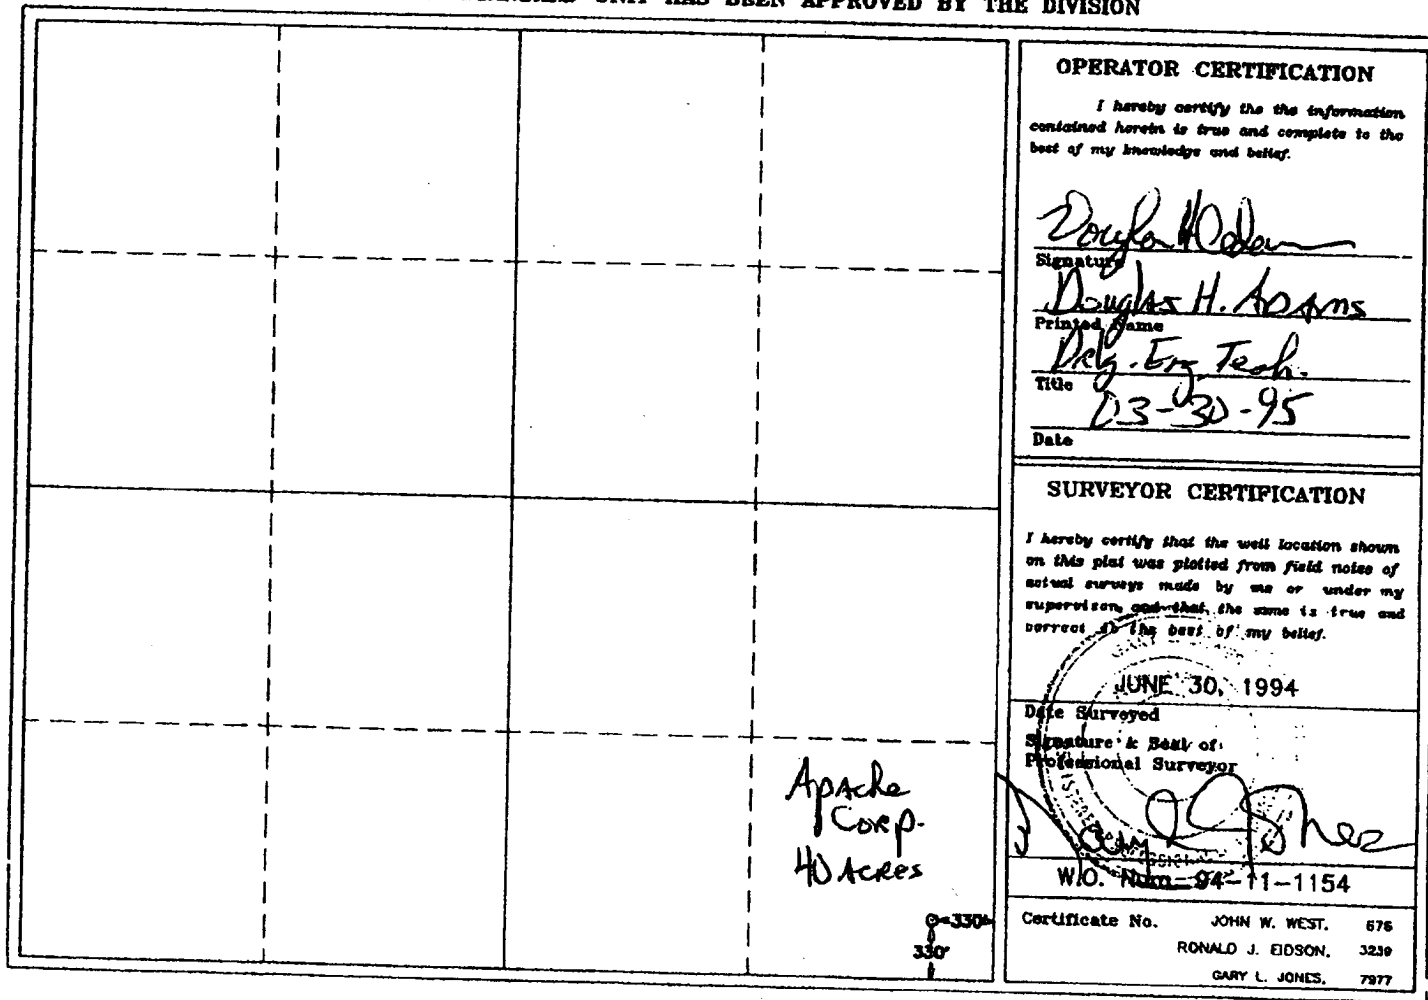 UNIT HAS BEEN APPROVED BY THE DIVISION
Apache
Corp.
40 Acres
330'
330'
OPERATOR CERTIFICATION
I hereby certify the the information
contained herein is true and complete to the
best of my knowledge and belief.
Signature
Douglas H. Adams
Printed Name
Drlg. Eng. Tech.
Title
03-30-95
Date
SURVEYOR CERTIFICATION
I hereby certify that the well location shown
on this plat was plotted from field notes of
actual surveys made by me or under my
supervison, and that the same is true and
correct to the best of my belief.
JUNE 30, 1994
Date Surveyed
Signature & Seal of
Professional Surveyor
W.O. Num. 94-11-1154
Certificate No. JOHN W. WEST, 676
RONALD J. EIDSON, 3239
GARY L. JONES, 7977